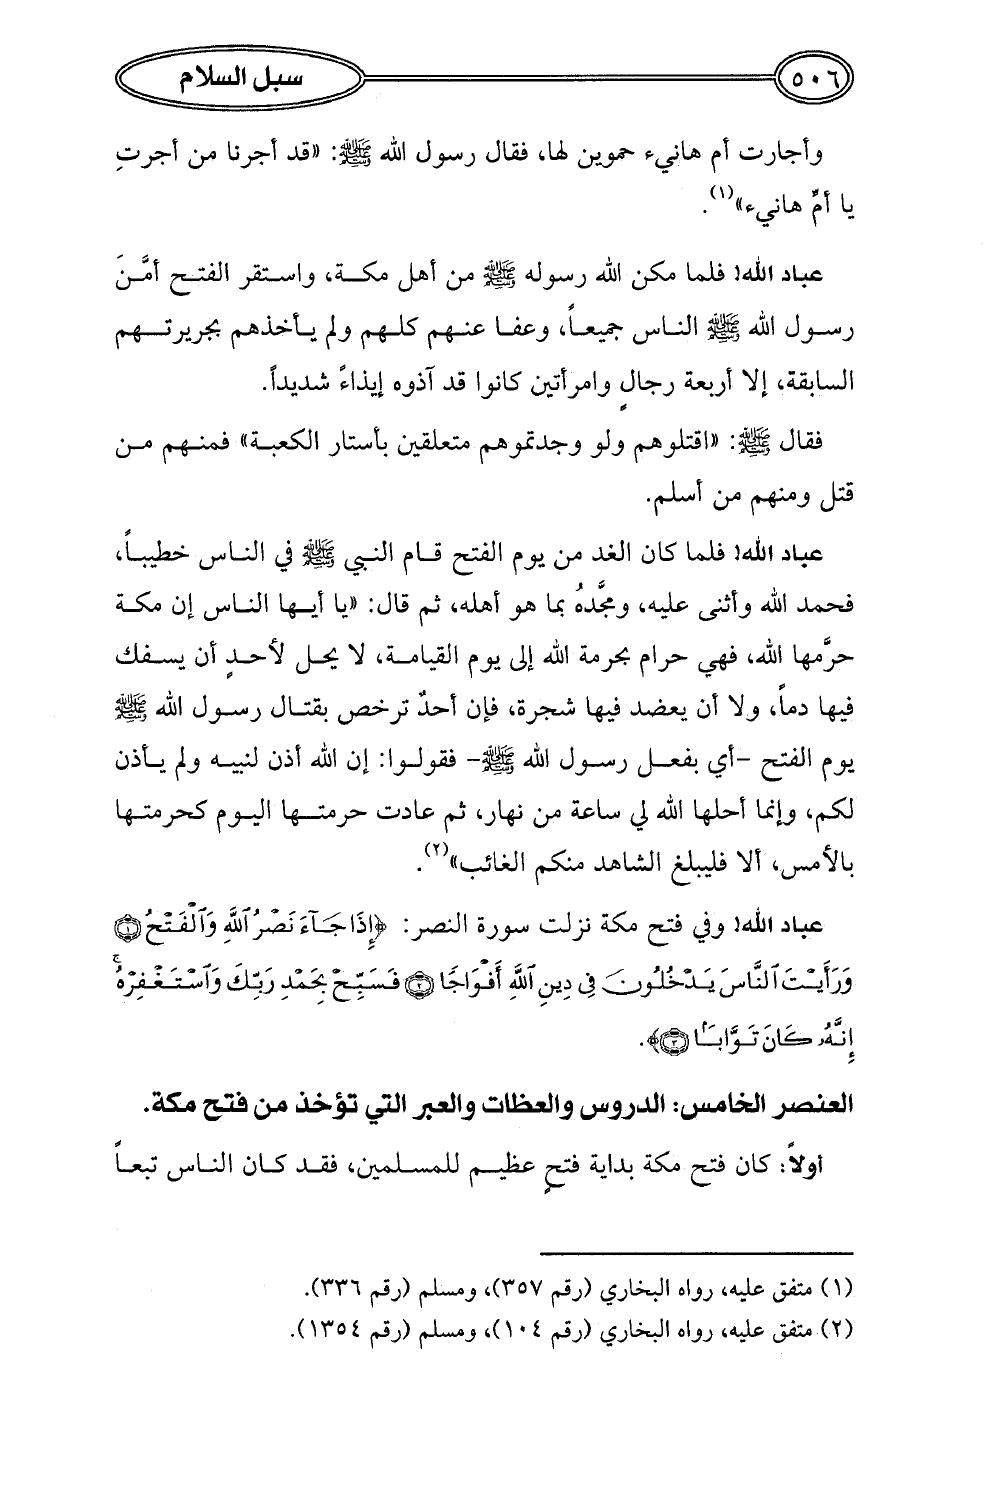 ٥٠٦ سبل السلام
وأجارت أم هانيء حموين لها، فقال رسول الله ﷺ: «قد أجرنا من أجرتِ
يا أمَّ هانيء»(١).
عباد الله! فلما مكن الله رسوله ﷺ من أهل مكة، واستقر الفتح أمَّنَ
رسول الله ﷺ الناس جميعاً، وعفا عنهم كلهم ولم يأخذهم بجريرتهم
السابقة، إلا أربعة رجالٍ وامرأتين كانوا قد آذوه إيذاءً شديداً.
فقال ﷺ: «اقتلوهم ولو وجدتموهم متعلقين بأستار الكعبة» فمنهم من
قتل ومنهم من أسلم.
عباد الله! فلما كان الغد من يوم الفتح قام النبي ﷺ في الناس خطيباً،
فحمد الله وأثنى عليه، ومجَّدهُ بما هو أهله، ثم قال: «يا أيها الناس إن مكة
حرَّمها الله، فهي حرام بحرمة الله إلى يوم القيامة، لا يحل لأحدٍ أن يسفك
فيها دماً، ولا أن يعضد فيها شجرة، فإن أحدٌ ترخص بقتال رسول الله ﷺ
يوم الفتح -أي بفعل رسول الله ﷺ- فقولوا: إن الله أذن لنبيه ولم يأذن
لكم، وإنما أحلها الله لي ساعة من نهار، ثم عادت حرمتها اليوم كحرمتها
بالأمس، ألا فليبلغ الشاهد منكم الغائب»(٢).
عباد الله! وفي فتح مكة نزلت سورة النصر: ﴿إِذَا جَآءَ نَصْرُ ٱللَّهِ وَٱلْفَتْحُ ١
وَرَأَيْتَ ٱلنَّاسَ يَدْخُلُونَ فِى دِينِ ٱللَّهِ أَفْوَاجًا ٢ فَسَبِّحْ بِحَمْدِ رَبِّكَ وَٱسْتَغْفِرْهُ ۚ
إِنَّهُۥ كَانَ تَوَّابًۢا ٣﴾.
العنصر الخامس: الدروس والعظات والعبر التي تؤخذ من فتح مكة.
أولاً: كان فتح مكة بداية فتحٍ عظيم للمسلمين، فقد كان الناس تبعاً
(١) متفق عليه، رواه البخاري (رقم ٣٥٧)، ومسلم (رقم ٣٣٦).
(٢) متفق عليه، رواه البخاري (رقم ١٠٤)، ومسلم (رقم ١٣٥٤).